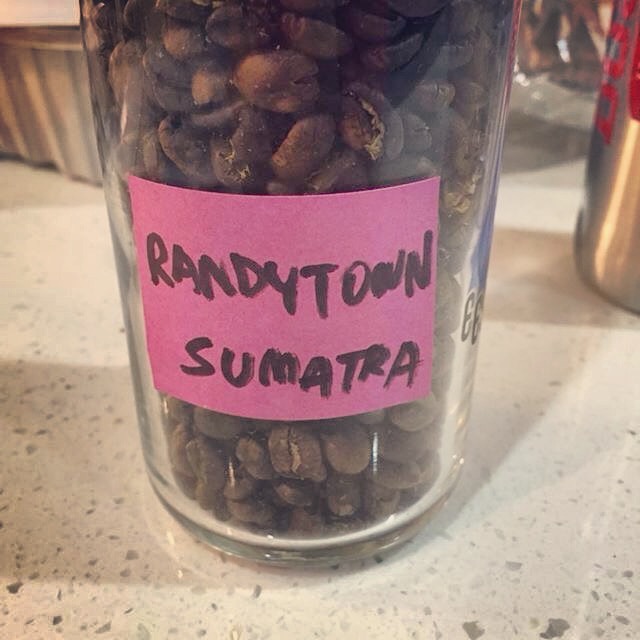 RANDYTOWN
SUMATRA